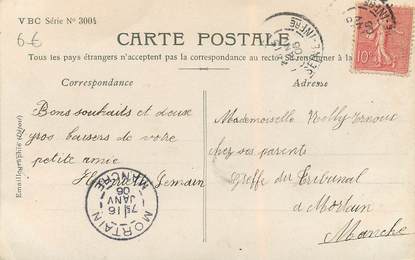 VBC Série N° 3004
6€
CARTE POSTALE
Tous les pays étrangers n'acceptent pas la correspondance au recto (Se renseigner à la
Correspondance
Adresse
Bons souhaits et deux
gros baisers de votre
petite amie
Henriette Jemain
Mademoiselle Nelly
chez ses parents
Greffe du Tribunal
à Mortain
Manche
MORTAIN
MANCHE
16
JANV
06
10